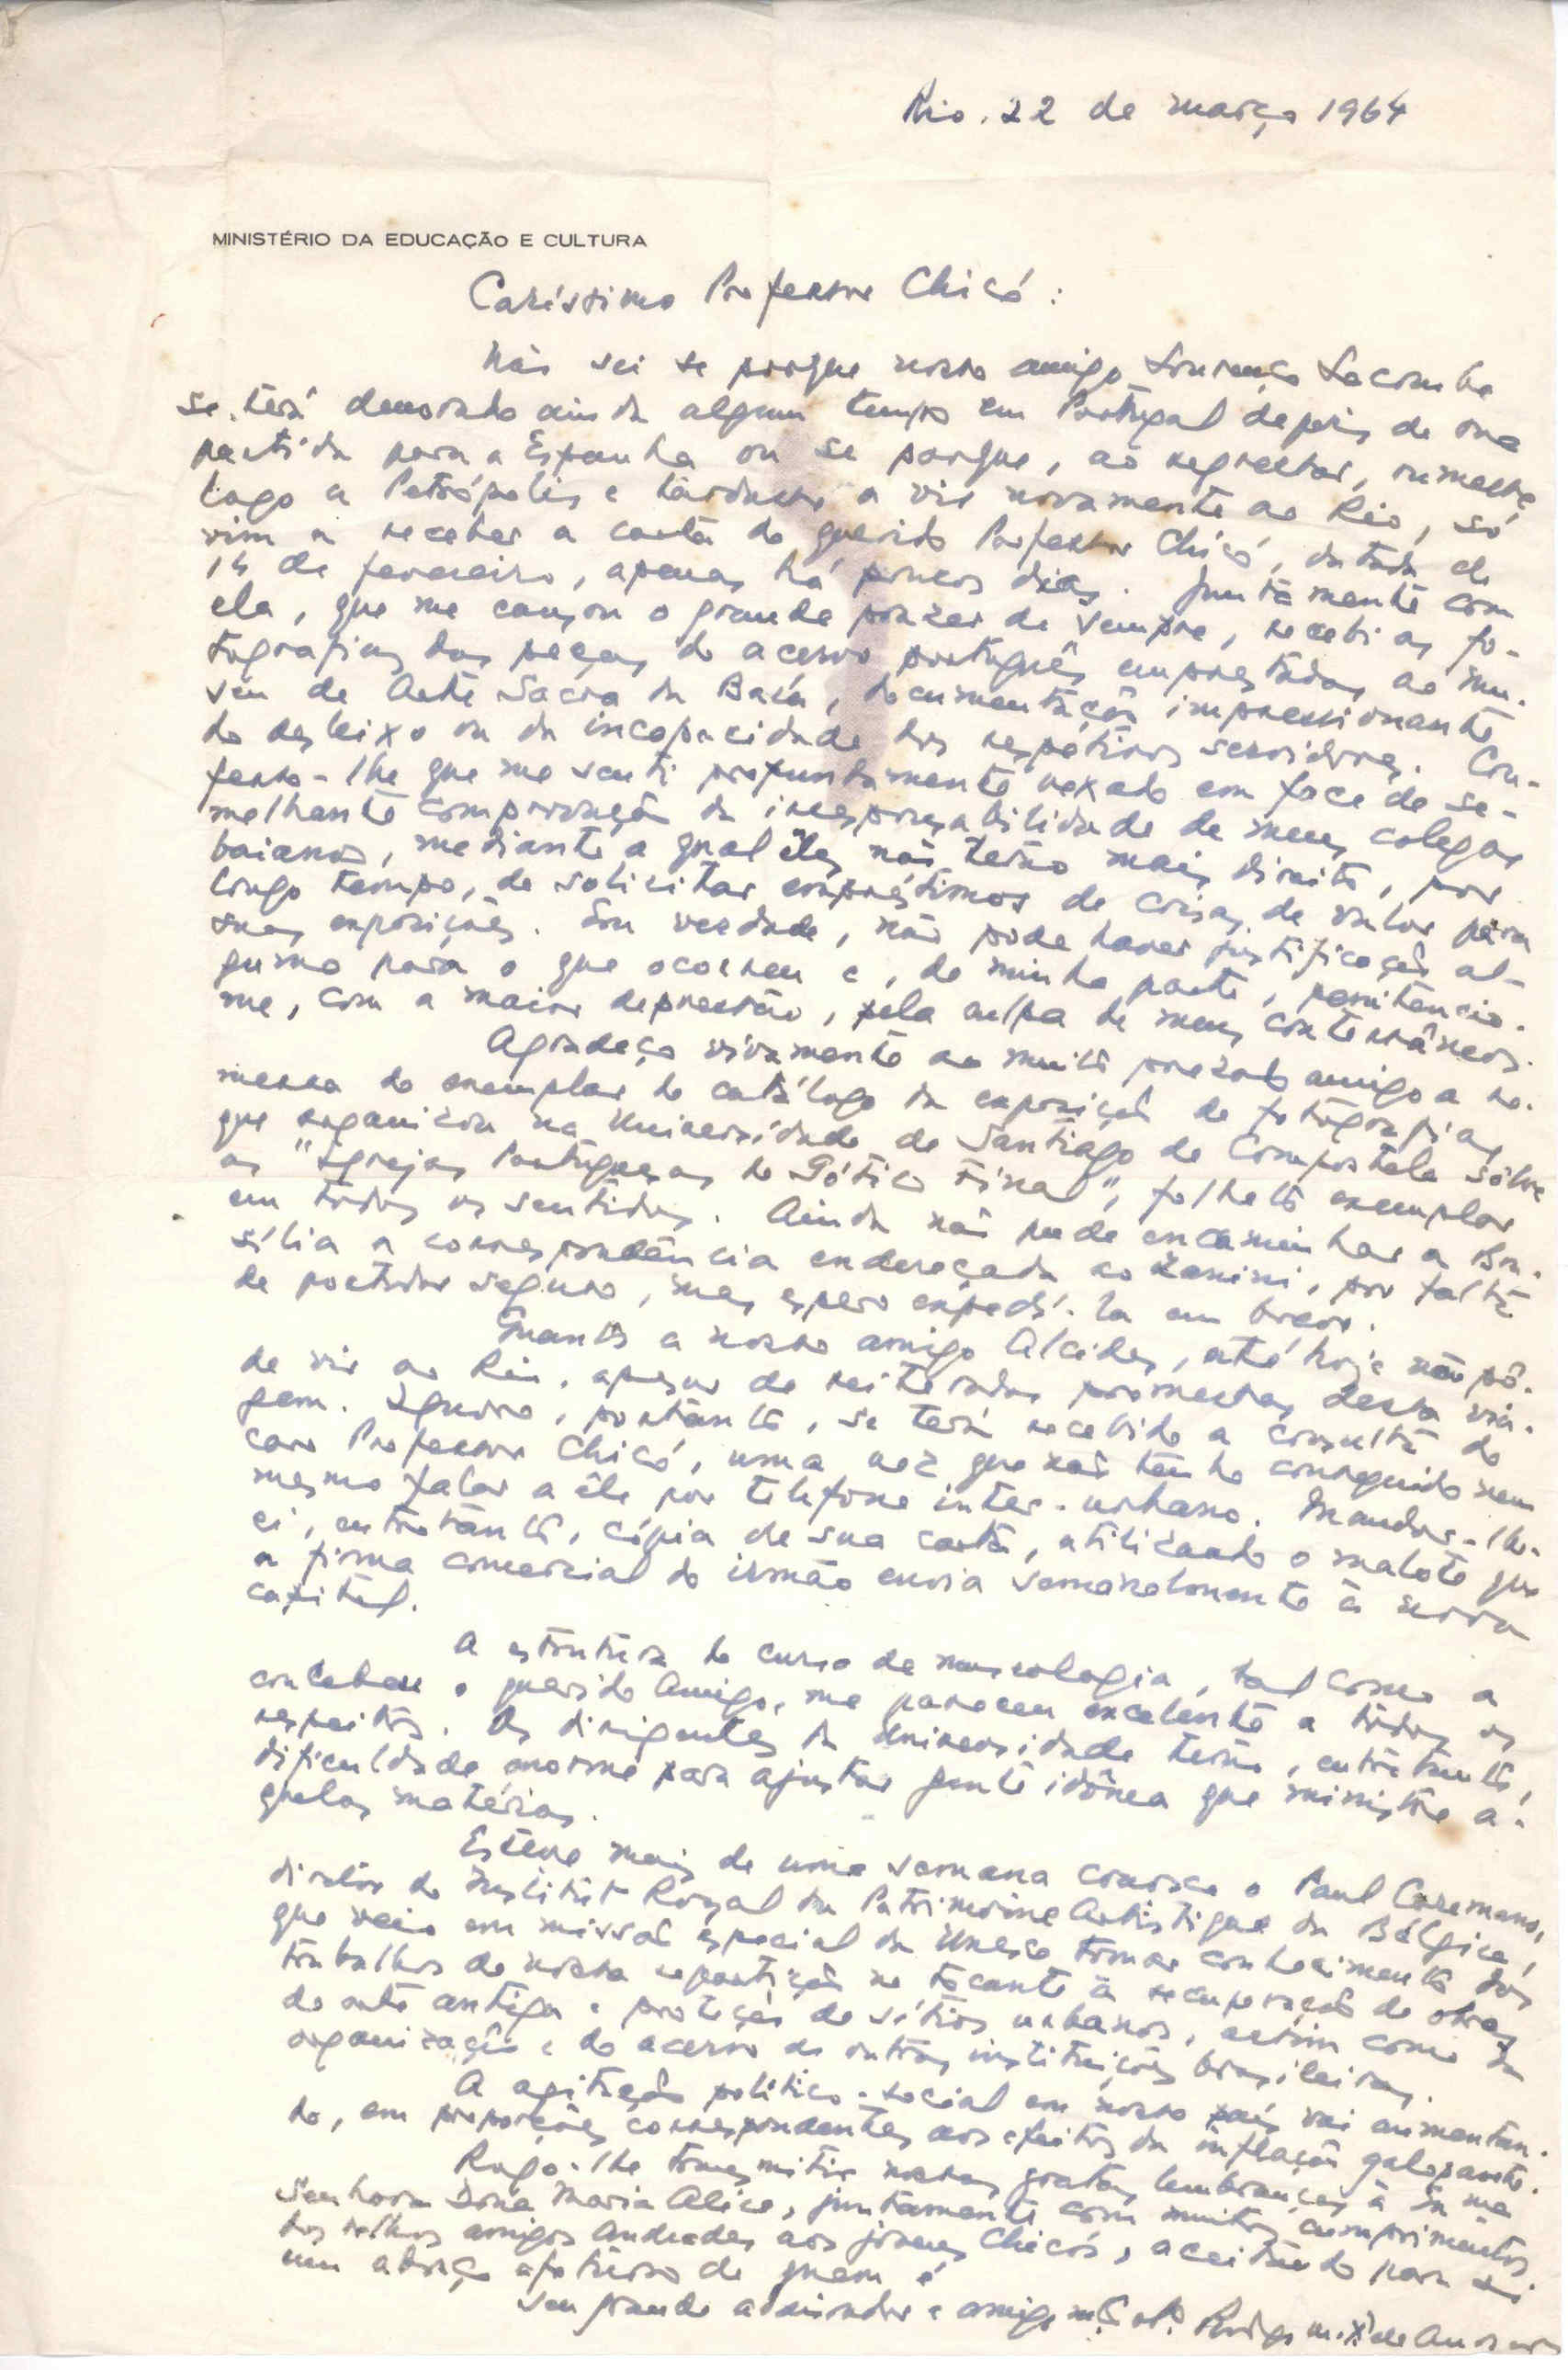 Rio. 22 de março 1964
MINISTÉRIO DA EDUCAÇÃO E CULTURA
Caríssimo Professor Chicó:
Não sei se porque nosso amigo Lourenço Lacombe
se terá demorado ainda algum tempo em Portugal depois de sua
partida para a Espanha ou se porque, ao regressar, rumasse
logo a Petrópolis e tardasse a vir novamente ao Rio, só
vim a receber a carta do querido Professor Chicó, datada de
14 de fevereiro, apenas há poucos dias. Juntamente com
ela, que me causou o grande prazer de sempre, recebi as fo-
tografias das peças do acervo português emprestadas ao Mu-
seu de Arte Sacra da Baía, documentação impressionante
do desleixo ou da incapacidade dos respetivos servidores. Con-
fesso-lhe que me senti profundamente vexado em face de se-
melhante comprovação da irresponsabilidade de meus colegas
baianos, mediante a qual êles não terão mais direito, por
longo tempo, de solicitar empréstimos de coisas de valor para
suas exposições. Em verdade, não pode haver justificação al-
guma para o que ocorreu e, de minha parte, penitencio-
me, com a maior depressão, pela culpa de meus conterrâneos.
Agradeço vivamente ao muito prezado amigo a re-
messa do exemplar do catálogo da exposição de fotografias
que organizou na Universidade de Santiago de Compostela sôbre
as "Igrejas Portuguesas do Gótico Final", folheto exemplar
em todos os sentidos. Ainda não pude encaminhar a Bra-
sília a correspondência endereçada ao Zanini, por falta
de portador seguro, mas espero expedí-la em breve.
Quanto a nosso amigo Alcides, até hoje não pô-
de vir ao Rio, apesar de reiteradas promessas dessa via-
gem. Ignoro, portanto, se terá recebido a consulta do
caro Professor Chicó, uma vez que não tenho conseguido nem
mesmo falar a êle por telefone inter-urbano. Mandar-lhe-
ei, entretanto, cópia de sua carta, utilizando o malote que
a firma comercial do irmão envia semanalmente à nova
capital.
A estrutura do curso de museologia, tal como a
concebeu o querido Amigo, me pareceu excelente a todos os
respeitos. Os dirigentes da Universidade terão, entretanto,
dificuldade enorme para ajustar gente idônea que ministre a-
quelas matérias.
Esteve mais de uma semana conosco o Paul Coremans,
diretor do Institut Royal du Patrimoine Artistique da Bélgica,
que veio em missão especial da Unesco tomar conhecimento dos
trabalhos de nossa repartição no tocante à recuperação de obras
de arte antiga e proteção de sítios urbanos, assim como da
organização e do acervo de outras instituições brasileiras.
A agitação político-social em nosso país vai aumentan-
do, em proporções correspondentes aos efeitos da inflação galopante.
Rogo-lhe transmitir nossas gratas lembranças à Exma
Senhora Dona Maria Alice, juntamente com muitos cumprimentos
dos velhos amigos Andrades aos jovens Chicós, aceitando para si
um abraço afetuoso de quem é
seu grande admirador e amigo mto obro Rodrigo M. F. de Andrade